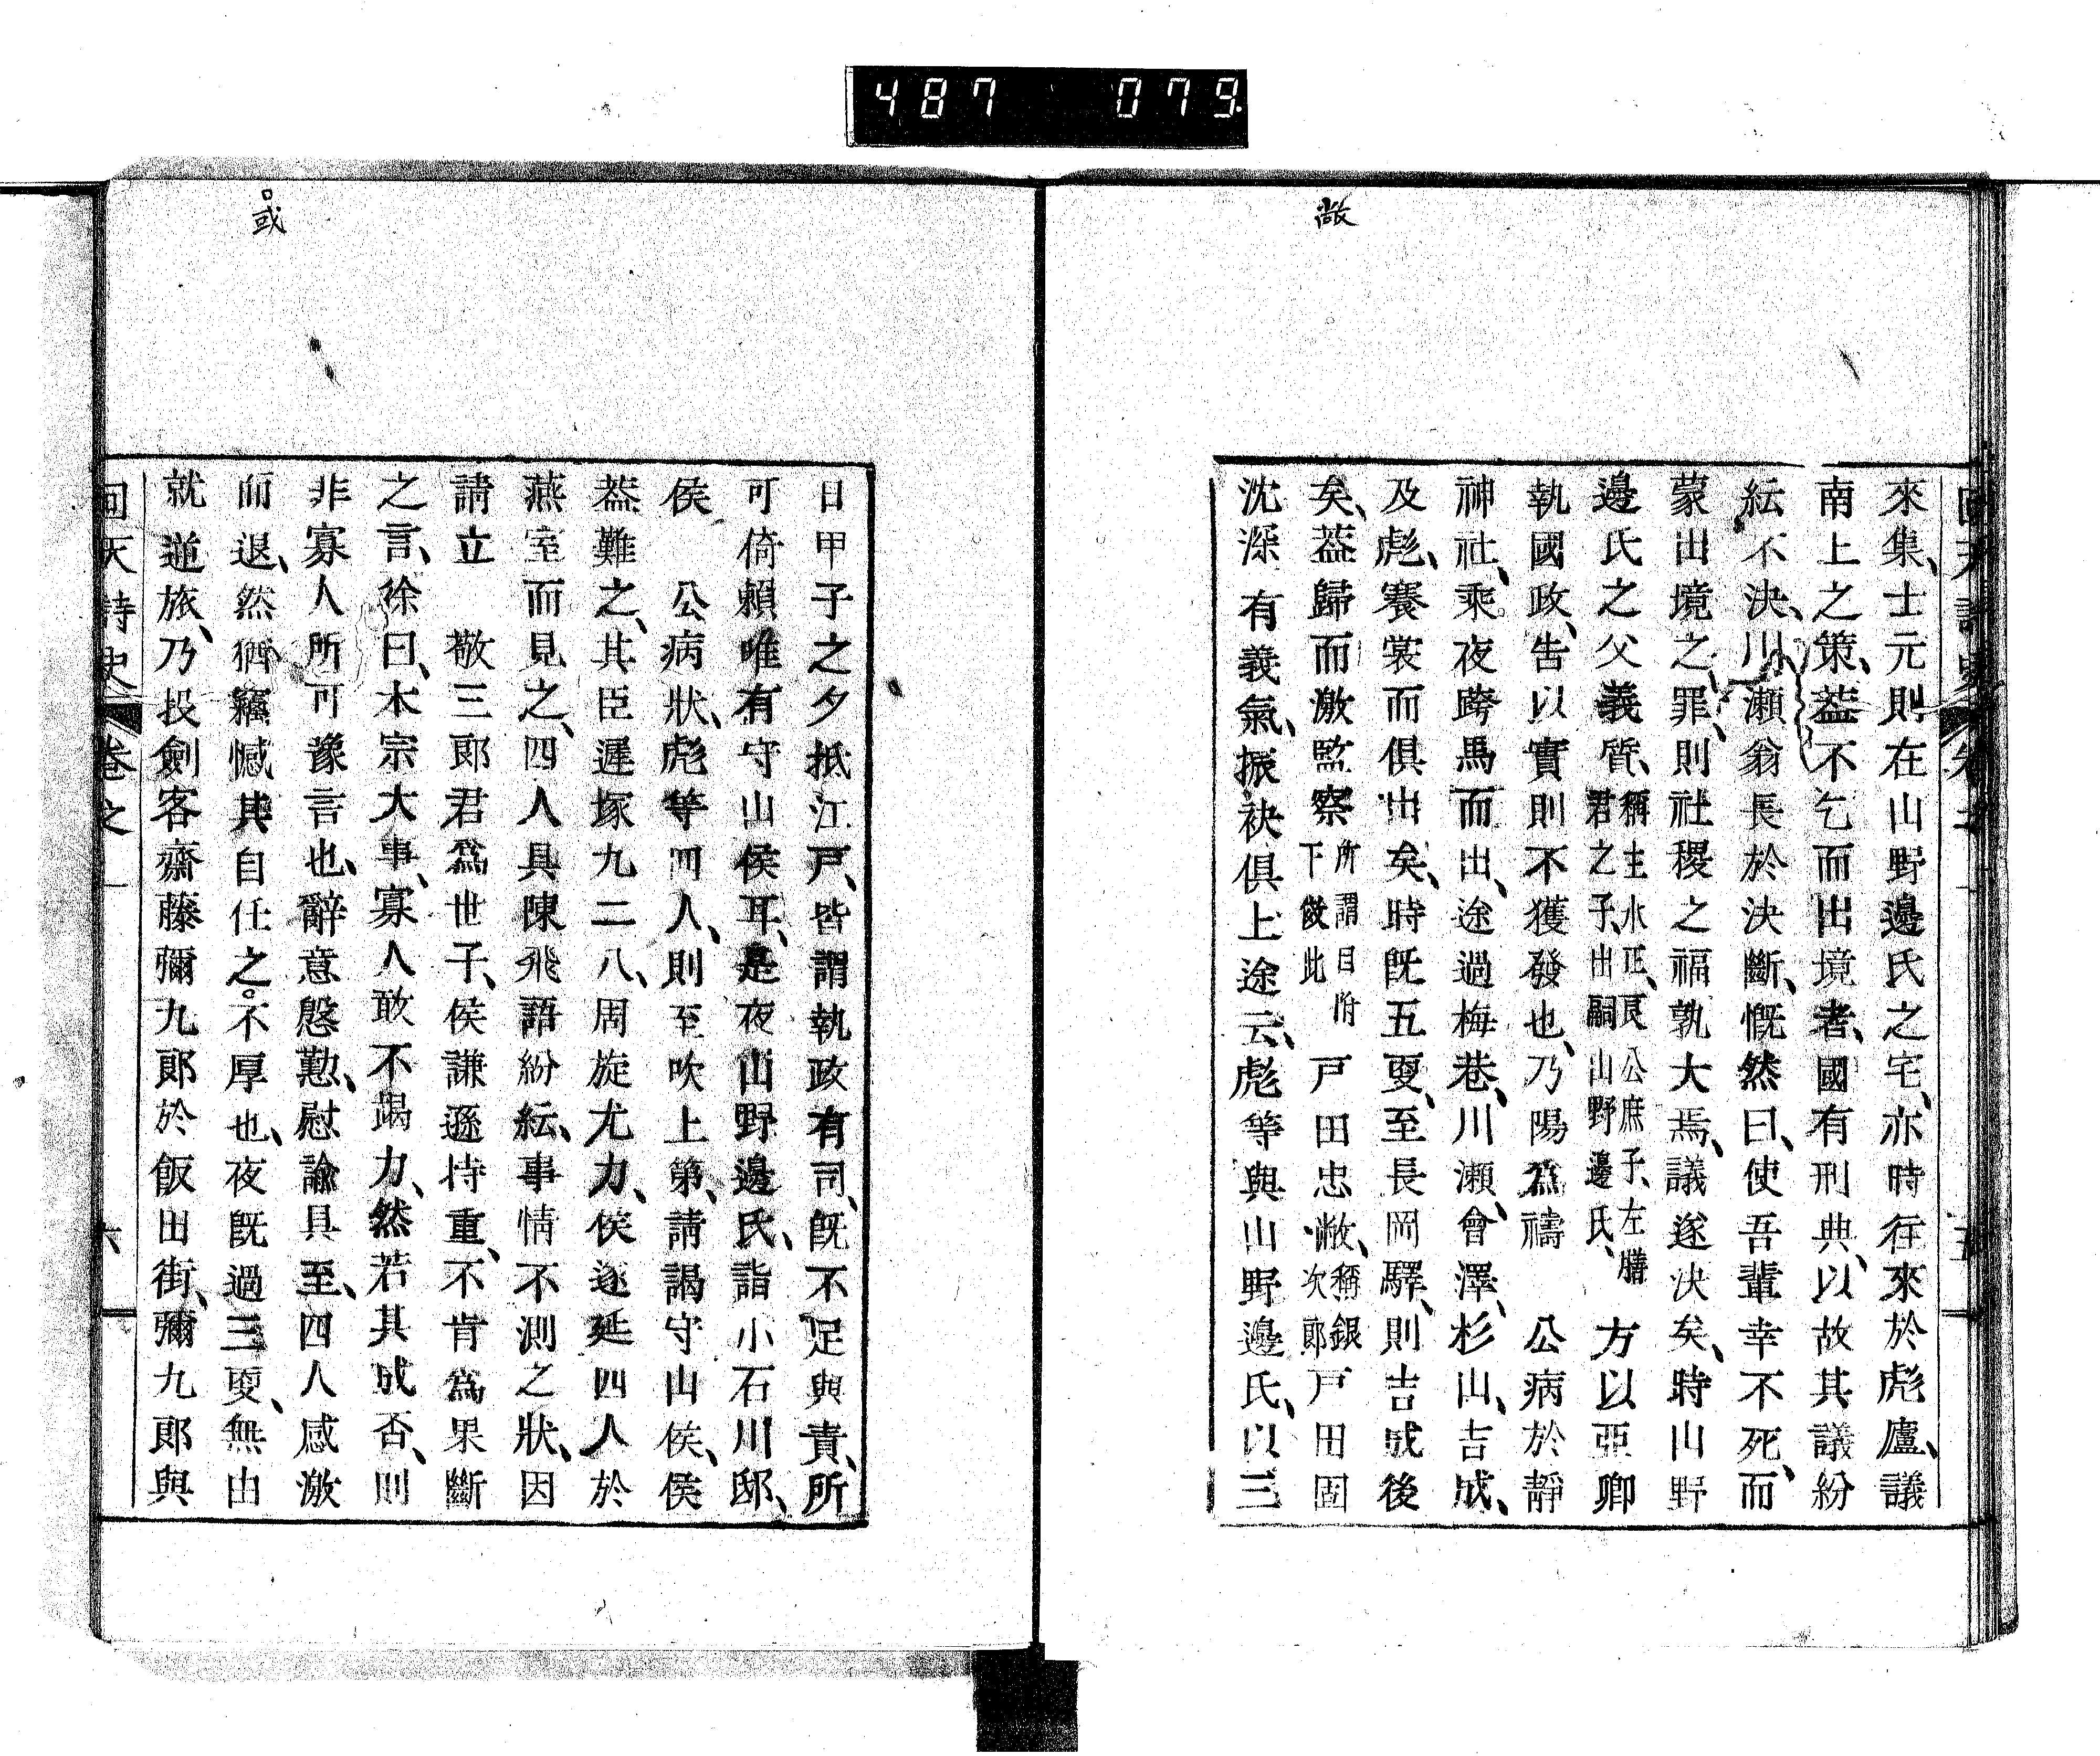 487 079
敞
來集、士元則在山野邊氏之宅、亦時往來於彪廬、議
南上之策、葢不乞而出境者、國有刑典、以故其議紛
紜不決、川瀬翁長於決斷、慨然曰、使吾輩幸不死、而
蒙出境之罪、則社稷之福孰大焉、議遂決矣、時山野
邊氏之父義質、稱主水正、良公庶子、左膳君之子、出嗣山野邊氏、方以亞卿
執國政、吿以實則不獲發也、乃陽爲禱 公病於靜
神社、乘夜跨馬而出、途過梅巷、川瀬、會澤、杉山、吉成、
及彪、褰裳而俱出矣、時旣五更、至長岡驛、則吉成後
矣、葢歸而激監察所謂目附下傚此戸田忠敝、稱銀次郎戸田固
沈深有義氣、振袂俱上途云、彪等與山野邊氏、以三
回天詩史 卷之 五
或
日甲子之夕抵江戸、皆謂執政有司、旣不足與責、所
可倚頼唯有守山侯耳、是夜山野邊氏、詣小石川邸、
侯 公病狀、彪等四人、則至吹上第、請謁守山侯、侯
葢難之、其臣遲塚九二八、周旋尤力、侯遂延四人於
燕室而見之、四人具陳飛語紛紜、事情不測之狀、因
請立 敬三郎君爲世子、侯謙遜持重、不肯爲果斷
之言、徐曰、本宗大事、寡人敢不竭力、然若其成否、則
非寡人所可豫言也、辭意慇懃、慰諭具至、四人感激
而退、然猶竊憾其自任之不厚也、夜旣過三更、無由
就逆旅、乃投劍客齋藤彌九郎於飯田街、彌九郎與
回天詩史 卷之一 六